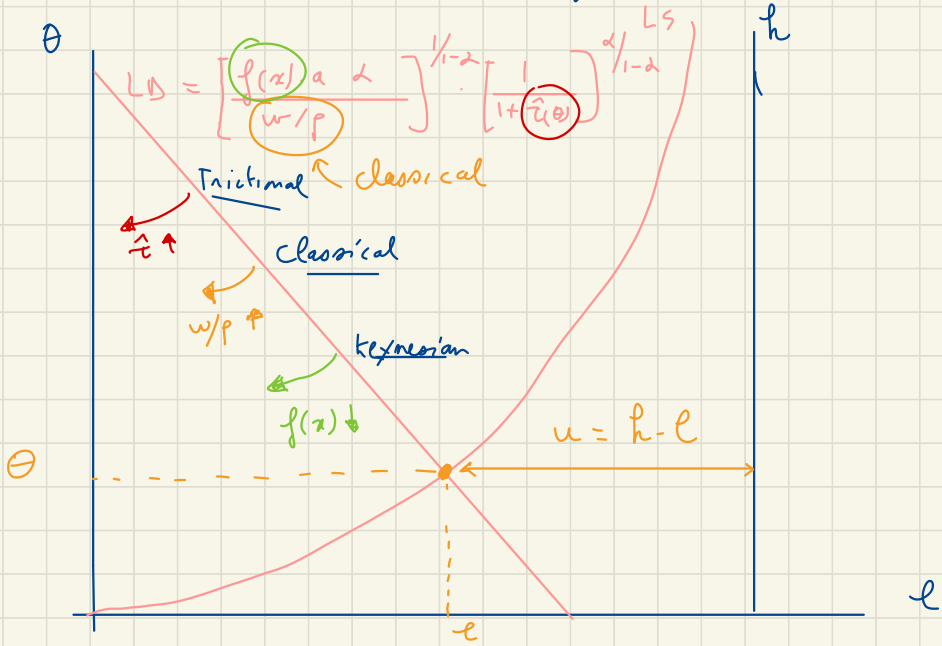 θ
LS
h
LD = [ f(x) a α / w/p ]^1/1-α · [ 1 / 1+τ̂(θ) ]^α/1-α
Frictional
classical
τ̂ ↑
Classical
w/p ↑
Keynesian
f(x) ↓
u = h - l
θ
l
l